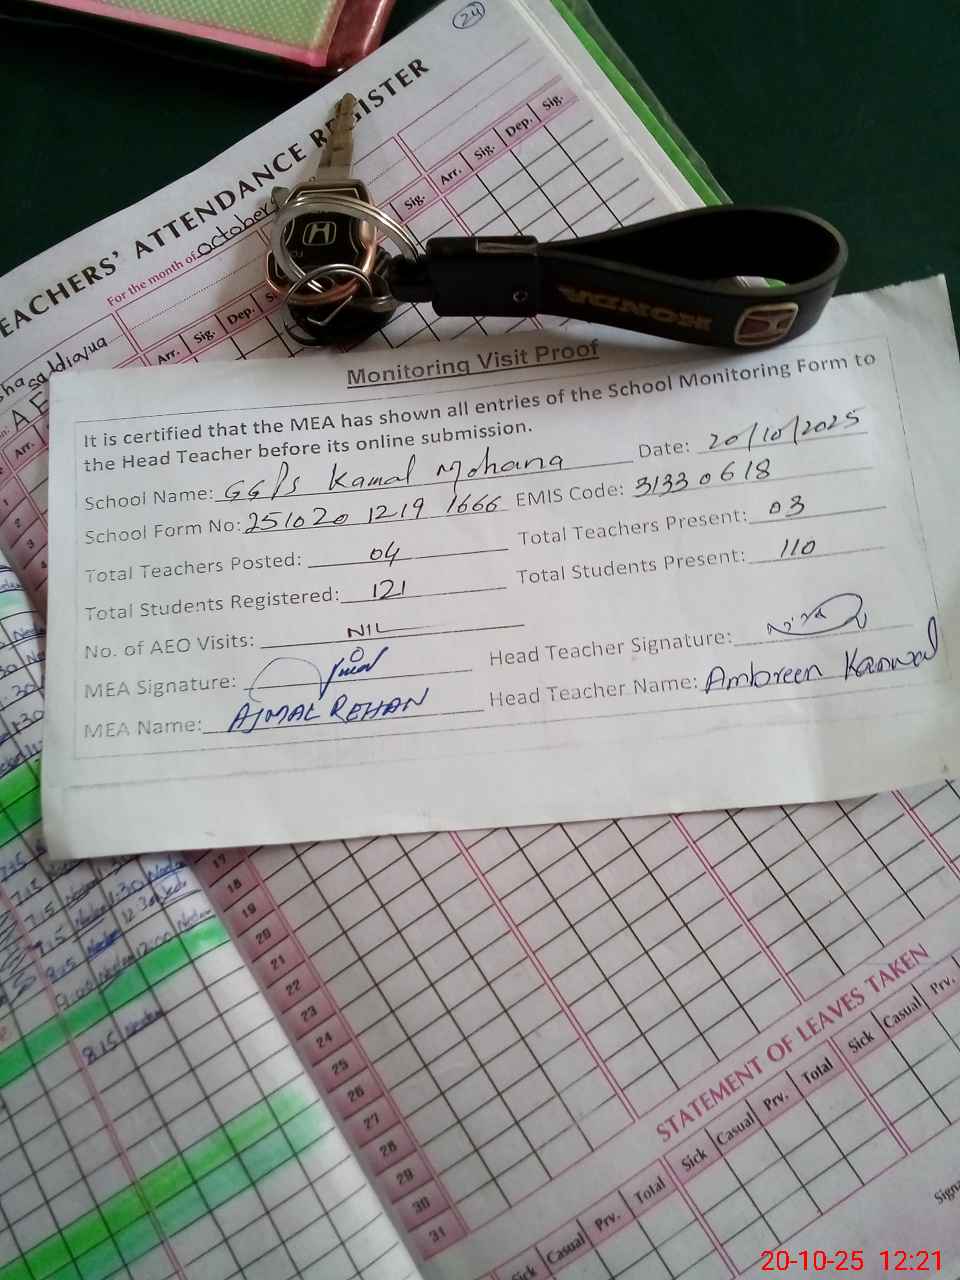 24
TEACHERS' ATTENDANCE REGISTER
For the month of october
Arr. Sig. Dep. Sig. Arr. Sig. Dep. Sig.
HONDA
Monitoring Visit Proof
It is certified that the MEA has shown all entries of the School Monitoring Form to
the Head Teacher before its online submission.
School Name: GGPS Kamal Mohana Date: 20/10/2025
School Form No: 251020 1219 1666 EMIS Code: 31330618
Total Teachers Posted: 04 Total Teachers Present: 03
Total Students Registered: 121 Total Students Present: 110
No. of AEO Visits: NIL
MEA Signature: Head Teacher Signature:
MEA Name: AJMAL REHAN Head Teacher Name: Ambreen Kanwal
17
18
19
20
21
22
23
24
25
26
27
28
29
30
31
8:15
STATEMENT OF LEAVES TAKEN
Sick Casual Prv. Total Sick Casual Prv. Total Sick Casual Prv.
20-10-25 12:21